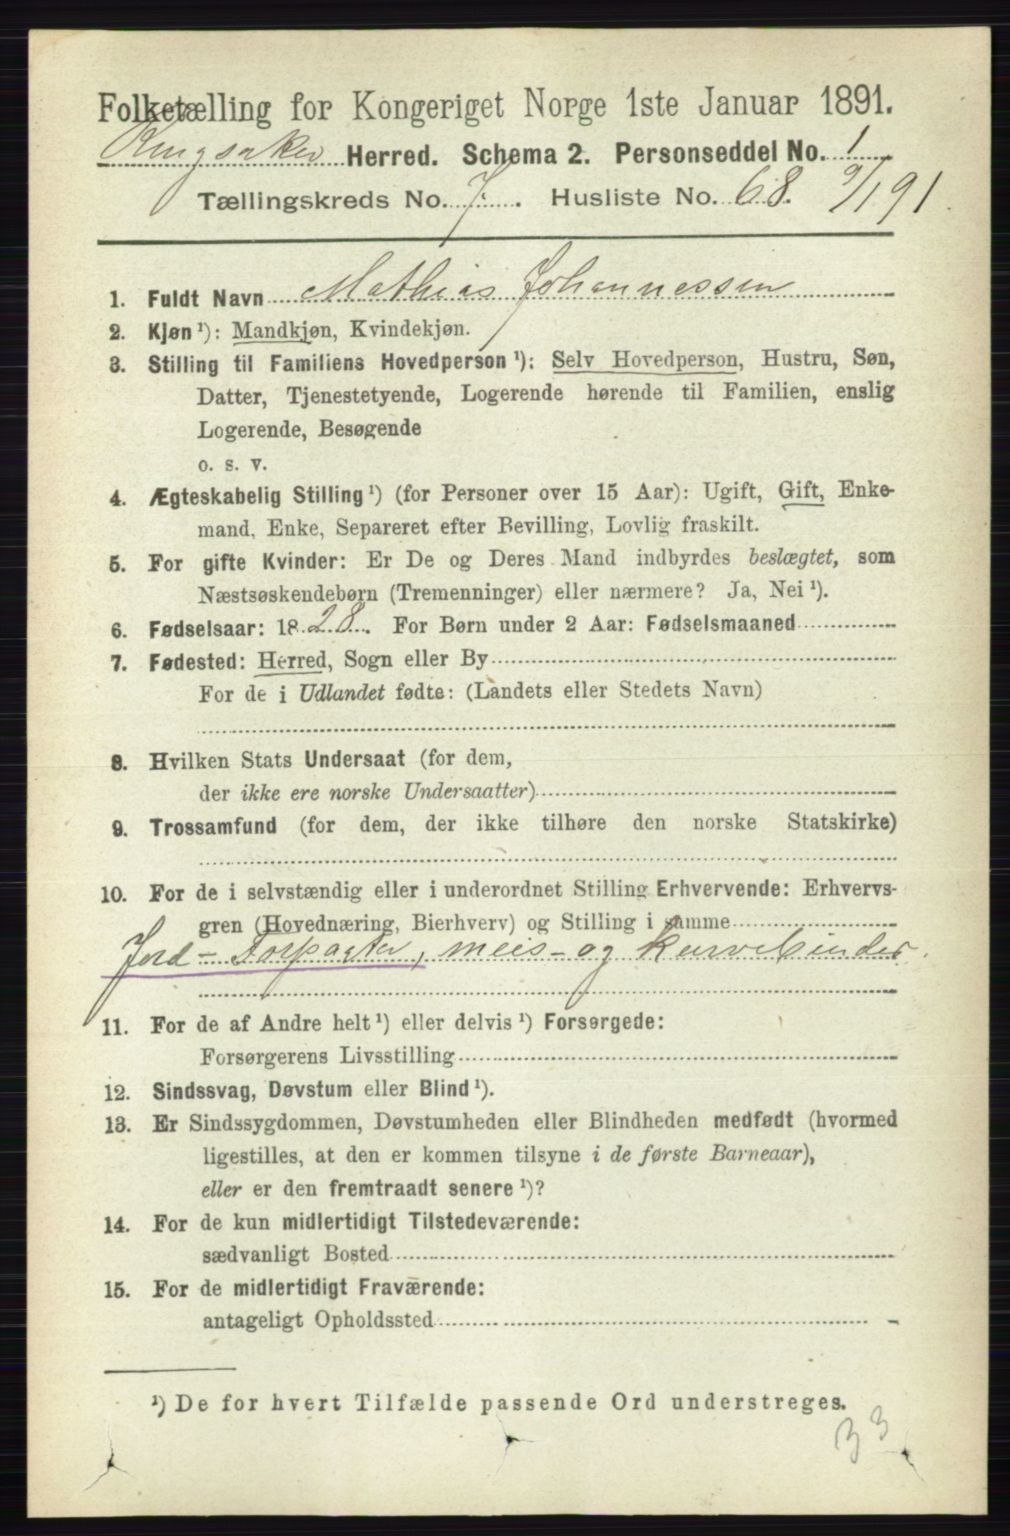 Folketælling for Kongeriget Norge 1ste Januar 1891.
Ringsaker Herred. Schema 2. Personseddel No. 1
Tællingskreds No. 7. Husliste No. 68. 9/1 91
1. Fuldt Navn Mathias Johannessen
2. Kjøn ¹): Mandkjøn, Kvindekjøn.
3. Stilling til Familiens Hovedperson ¹): Selv Hovedperson, Hustru, Søn,
Datter, Tjenestetyende, Logerende hørende til Familien, enslig
Logerende, Besøgende
o. s. v.
4. Ægteskabelig Stilling ¹) (for Personer over 15 Aar): Ugift, Gift, Enke-
mand, Enke, Separeret efter Bevilling, Lovlig fraskilt.
5. For gifte Kvinder: Er De og Deres Mand indbyrdes beslægtet, som
Næstsøskendebørn (Tremenninger) eller nærmere? Ja, Nei ¹).
6. Fødselsaar: 1828. For Børn under 2 Aar: Fødselsmaaned
7. Fødested: Herred, Sogn eller By
For de i Udlandet fødte: (Landets eller Stedets Navn)
8. Hvilken Stats Undersaat (for dem,
der ikke ere norske Undersaatter)
9. Trossamfund (for dem, der ikke tilhøre den norske Statskirke)
10. For de i selvstændig eller i underordnet Stilling Erhvervende: Erhvervs-
gren (Hovednæring, Bierhverv) og Stilling i samme
Jord-Forpagter, meis- og kurvebinder.
11. For de af Andre helt ¹) eller delvis ¹) Forsørgede:
Forsørgerens Livsstilling
12. Sindssvag, Døvstum eller Blind ¹).
13. Er Sindssygdommen, Døvstumheden eller Blindheden medfødt (hvormed
ligestilles, at den er kommen tilsyne i de første Barneaar),
eller er den fremtraadt senere ¹)?
14. For de kun midlertidigt Tilstedeværende:
sædvanligt Bosted
15. For de midlertidigt Fraværende:
antageligt Opholdssted
¹) De for hvert Tilfælde passende Ord understreges.
33